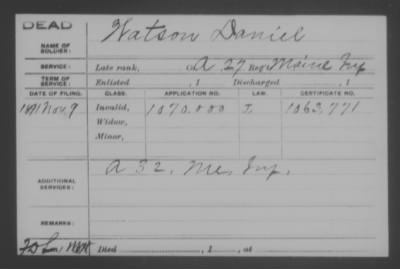 DEAD
NAME OF SOLDIER:
Watson Daniel
SERVICE: Late rank, Co. A 27 Reg't Maine Inf
TERM OF SERVICE: Enlisted , 1 Discharged , 1
DATE OF FILING. CLASS. APPLICATION NO. LAW. CERTIFICATE NO.
1891 Nov, 9 Invalid, 1070.000 I. 1063,771
Widow,
Minor,
ADDITIONAL SERVICES:
A 32, Me, Inf,
REMARKS:
Died , 1 , at